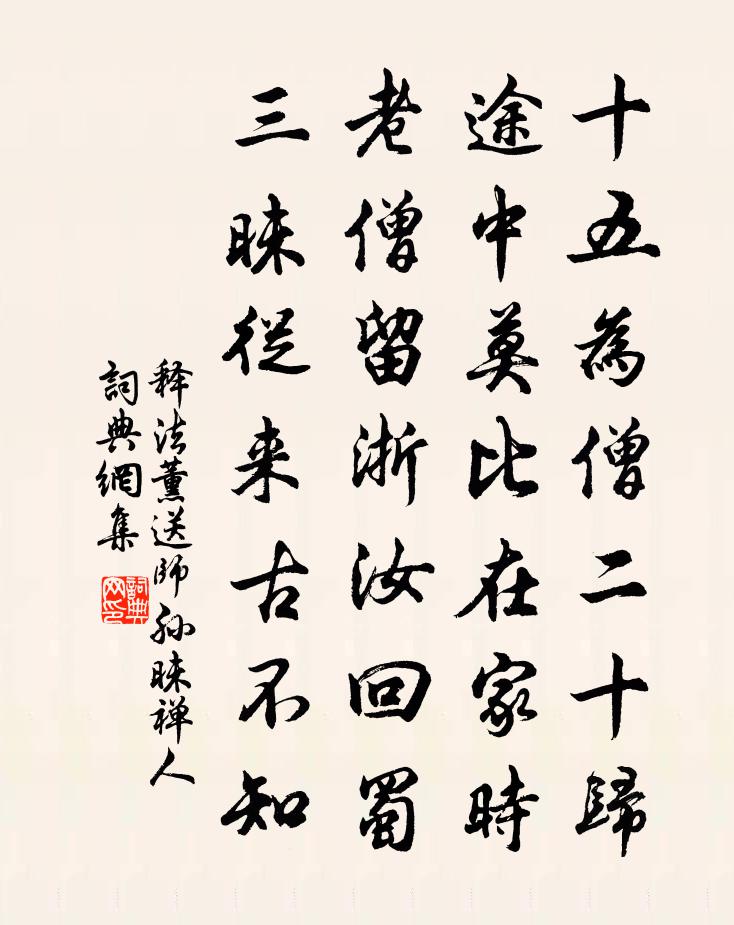 十五為僧二十歸
途中莫比在家時
老僧留浙汝回蜀
三昧從来古不知
释法薰送師孙昧禅人
詞典網集
詞典网印